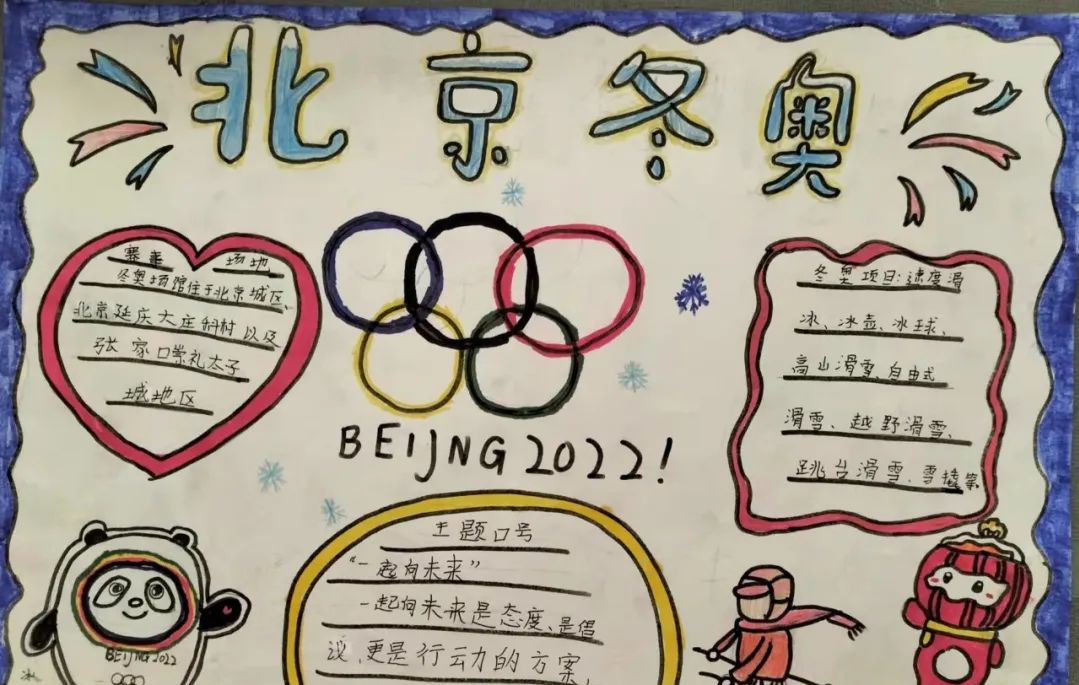 北京冬奥
赛事 场地
冬奥场馆位于北京城区、
北京延庆大庄科村以及
张家口崇礼太子
城地区
BEIJNG 2022!
冬奥项目:速度滑
冰、冰壶、冰球、
高山滑雪、自由式
滑雪、越野滑雪、
跳台滑雪、雪橇等
主题口号
“一起向未来”
一起向未来是态度、是倡
议、更是行动的方案、
BEIJING 2022